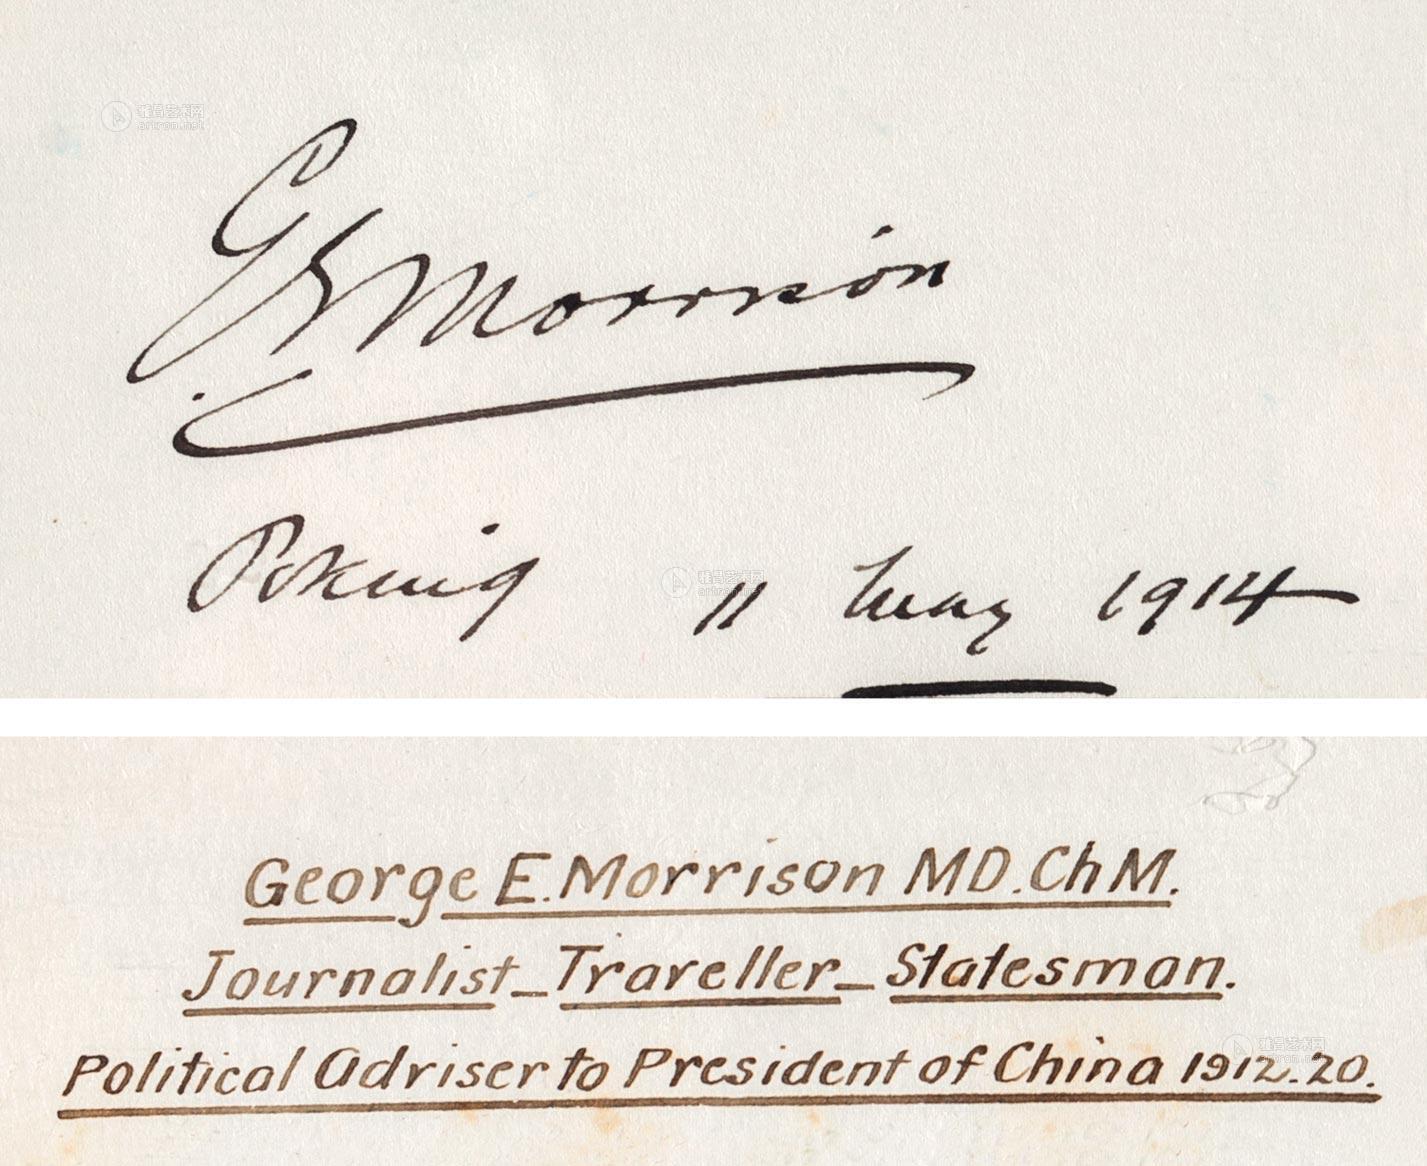 雅昌艺术网
artron.net
G E Morrison
Peking 11 May 1914
雅昌艺术网
artron.net
George E. Morrison MD. ChM.
Journalist_Traveller_Statesman.
Political Adviser to President of China 1912.20.
雅昌艺术网
artron.net